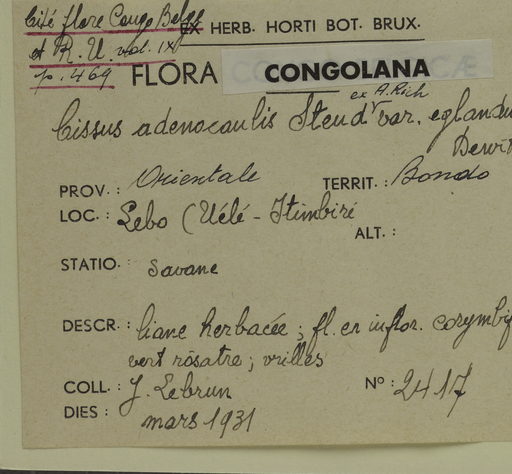 Cité flore Congo Belge
EX HERB. HORTI BOT. BRUX.
et R. U. vol. IX
p. 469
FLORA CONGOLANA
ex A. Rich
Cissus adenocaulis Steud var. eglandu
Dewit
PROV. : Orientale TERRIT. : Bondo
LOC. : Lebo (Uélé - Itimbiri
ALT. :
STATIO. : Savane
DESCR. : liane herbacée ; fl. en inflor. corymbif
vert rosâtre ; vrilles
COLL. : J. Lebrun Nº : 2417
DIES : mars 1931